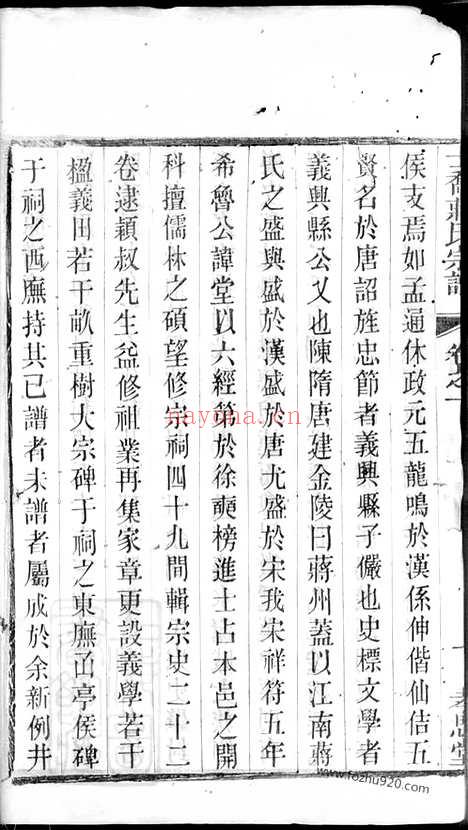 蔣氏宗譜
卷之一
孝思堂
侯支焉如孟通休政元五龍鳴於漢係伸偕仙佶五
賢名於唐詔旌忠節者義興縣子儼也史標文學者
義興縣公乂也陳隋唐建金陵曰蔣州蓋以江南蔣
氏之盛與盛於漢盛於唐尤盛於宋我宋祥符五年
希魯公諱堂以六經第於徐奭榜進士占本邑之開
科擅儒林之碩望修宗祠四十九間輯宗史二十二
卷逮穎叔先生益修祖業再集家章更設義學若干
楹義田若干畝重樹大宗碑于祠之東廡函亭侯碑
于祠之西廡持其已譜者未譜者屬成於余新例井
nayona.cn
www.fozhu920.com